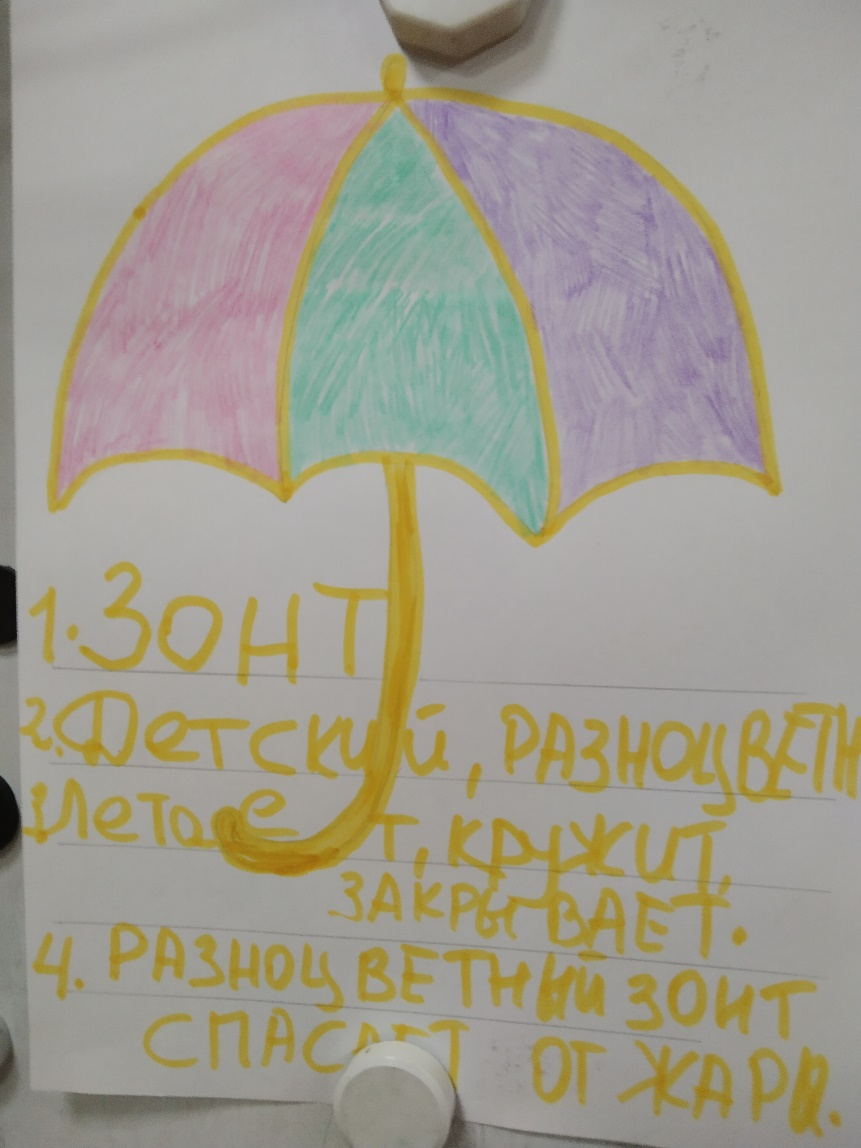 1. Зонт
2. Детский, РАЗНОЦВЕТН
3 Летает, кружит,
ЗАКРЫВАЕТ.
4. РАЗНОЦВЕТНЫЙ ЗОНТ
СПАСАЕТ ОТ ЖАРЫ.